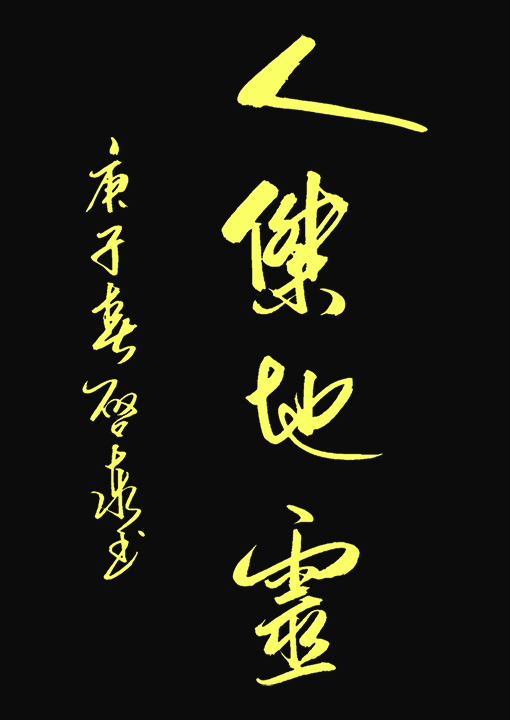 人傑地靈
庚子春啓泉玉